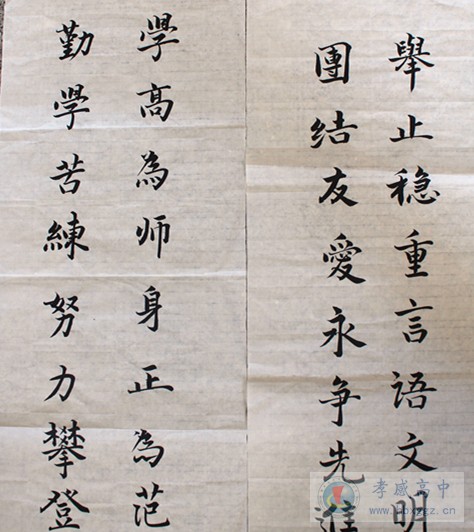 舉止稳重言語文明
團結友愛永争先進
學高為师身正為范
勤學苦練努力攀登
孝感高中